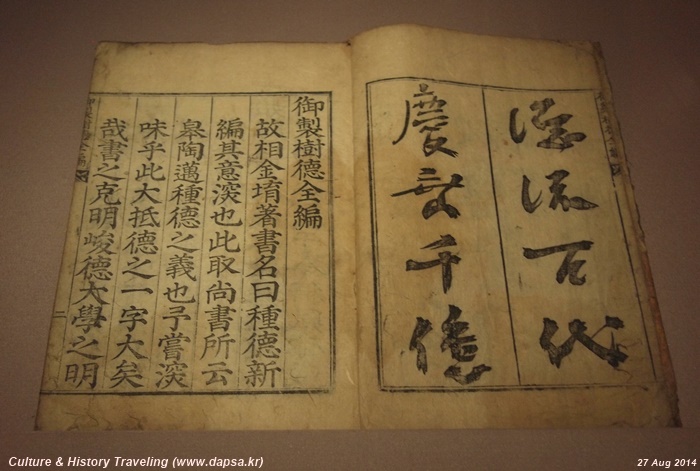 源流百代
慶垂千億
御製樹德全編
故相金堉著書名曰種德新
編其意深也此取尚書所云
皐陶邁種德之義也予嘗深
味乎此大抵德之一字大矣
哉書之克明峻德大學之明
二
Culture & History Traveling (www.dapsa.kr)
27 Aug 2014